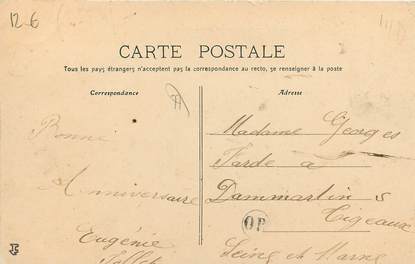 12-6
CARTE POSTALE
Tous les pays étrangers n'acceptent pas la correspondance au recto, se renseigner à la poste
Correspondance
Adresse
Bonne
Anniversaire
Eugénie
Madame Georges
Tarde a
Dammartin s
Tigeaux
Seine et Marne
OR